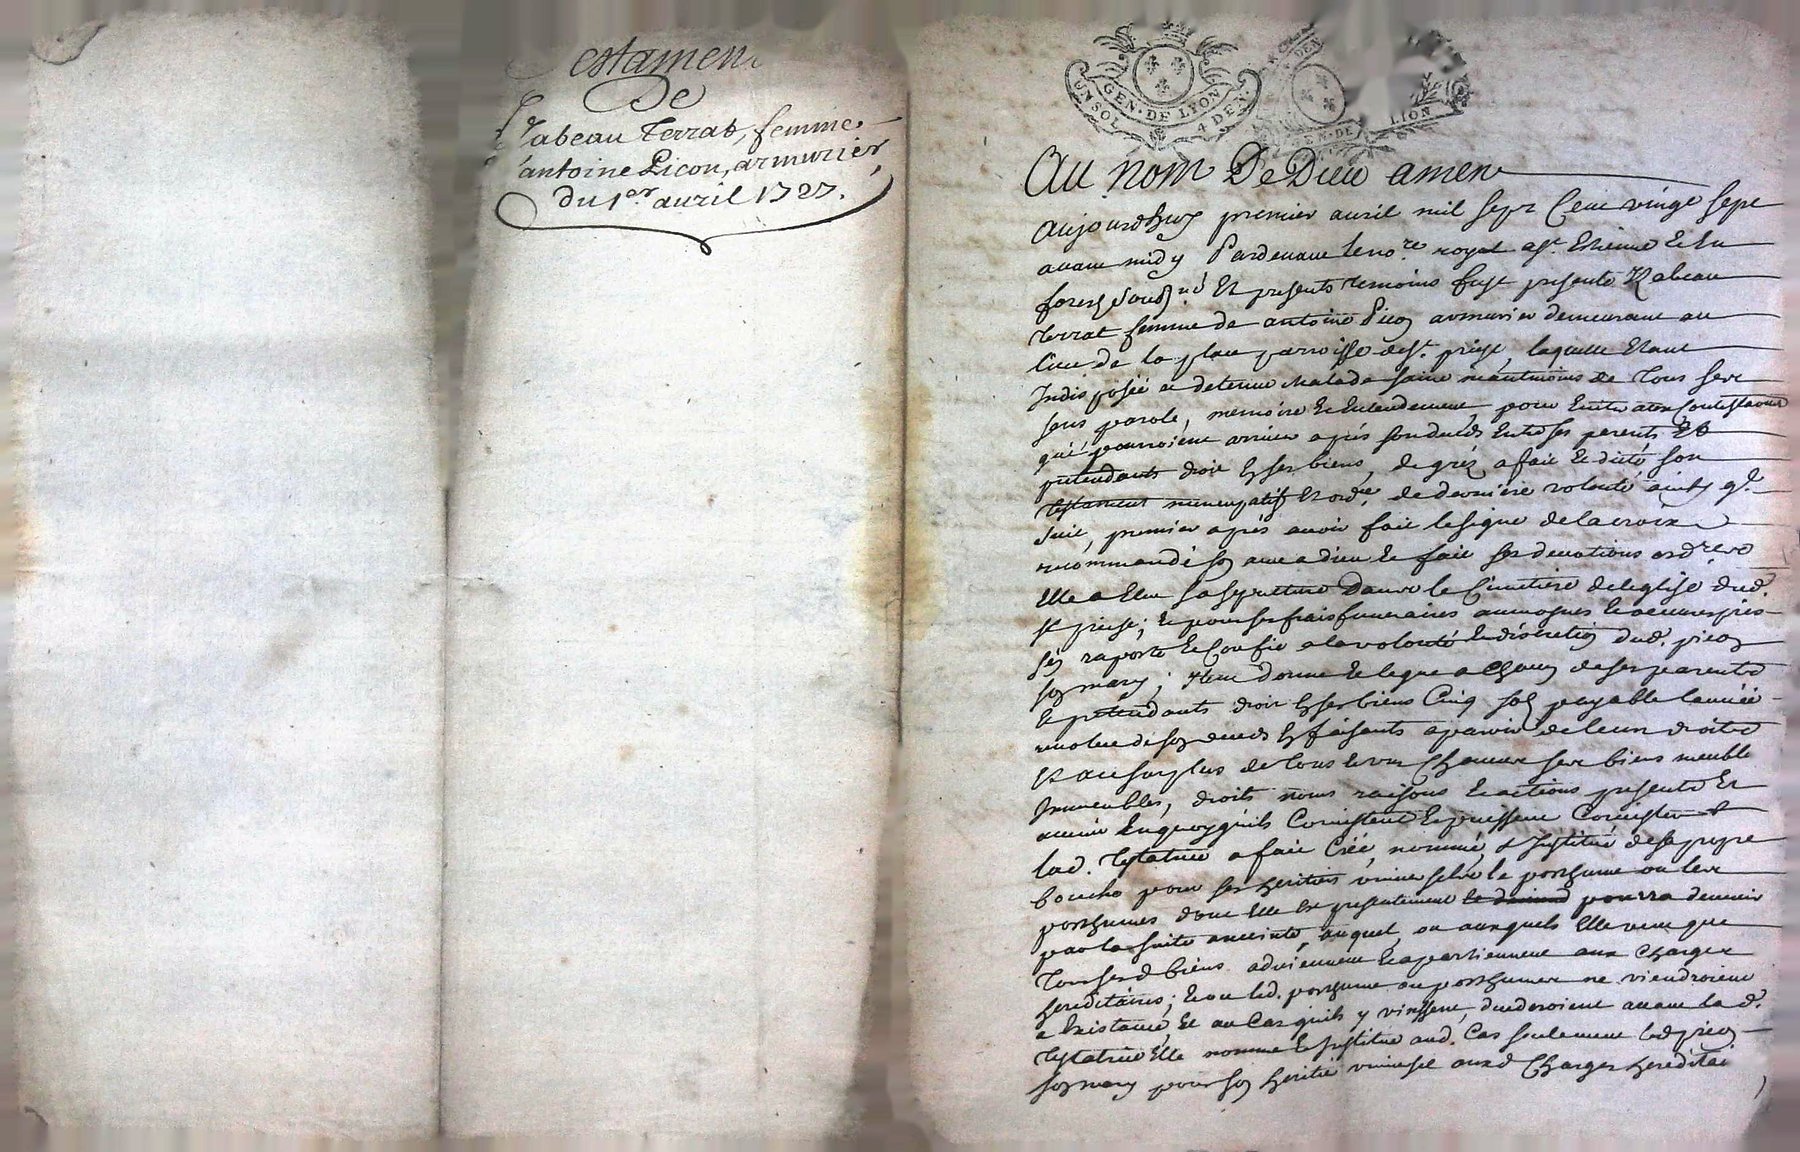 Testament
De
Ysabeau Terrat, femme
antoine Picon, armurier,
du 1er avril 1727.
UN SOL GEN. DE LYON 4 DEN
GEN. DE LION
Au nom De Dieu amen
Aujourdhuy premier auril mil sept Cent vingt sept
auant midy Pardeuant le nore. royal a St. Etienne
forest soubné. Et presents temoins fust presente Ysabeau
Terrat femme de antoine Picon armurier demeurant au
lieu de la place parroisse de St. priest, laquelle Etant
Indisposée et detenue malade saine neantmoins de tous ses
sens parole, memoire Et Entendement, pour Euiter aux Contestations
qui pourroient arriuer après son deceds Entre ses parents Et
pretendants droit En ses biens, de gréz a fait Et dicté son
testament nuncupatif Et ordre. de derniere volonté ainsy q.
suit, premier après auoir fait le signe de la croix
recommandé son ame a dieu Et fait ses deuotions ordres
Elle a Elue sa sepulture Dans le Cimetière de leglise dud.
St priest; Et pour ses frais funeraires aumosnes Et oeuures pies
sen raporte Et Confie a la volonté Et discretion dud. picon
son mary; Item donne Et legue a Chacun de ses parents
Et pretendants droit En ses biens Cinq sols payable lannée
reuolue de son deceds En faisants aparoir de leurs droits
Et au surplus de tous Et uns Chacuns ses biens meuble
Immeubles, droits noms raisons Et actions presents Et
auenir En quoy quils Consistent Et puissent Consister
lad. testatrice a fait Créé, nommé, & Institué de sa propre
bouche pour ses heritiers vniuersels le posthume ou les
posthumes dont Elle Est presentement pourra deuenir
par la suite enceinte, auquel, ou auxquels Elle veut que
tous sesd biens aduiennent Et apartiennent aux charges
hereditaires; Et ou led. posthume ou posthumes ne viendroient
a Existance Et au Cas quils y vinssent, decederoient auant lad.
testatrice Elle nomme Et Institue aud. Cas seulement led picon
son mary pour son heritier vniuersel auxd Charges heredítai